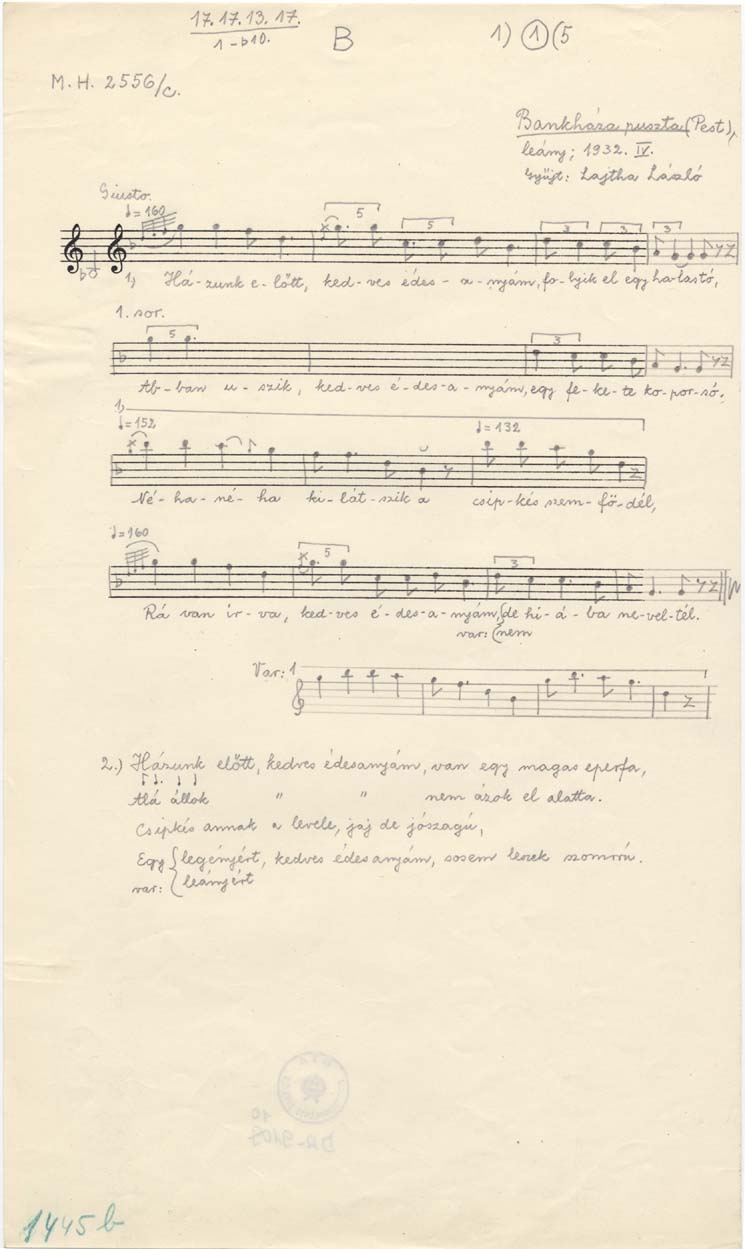 17. 17. 13. 17.
1 - b10.
B
1) 1 (5
M. H. 2556/c.
Bankháza puszta (Pest),
leány; 1932. IV.
Gyűjt: Lajtha László
Giusto.
♩= 160
5 5 3 3 3
1, Há-zunk e-lőtt, ked-ves édes-a-nyám, fo-lyik el egy ha-lastó,
1. sor.
5 3
Ab-ban u-szik, ked-ves é-des-a-nyám, egy fe-ke-te ko-por-só.
1,
♩= 152 ♩= 132
Né-ha-né-ha ki-lát-szik a csip-kés szem-fö-dél,
♩= 160
5 3
Rá van ír-va, ked-ves é-des-a-nyám, de hi-á-ba ne-vel-tél.
var: nem
Var: 1
2.) Házunk előtt, kedves édesanyám, van egy magas eperfa,
Alá állok " " nem ázok el alatta.
Csipkés annak a levele, jaj de jószagú,
Egy legényért, kedves édesanyám, sosem leszek szomorú.
var: leányért
1445 b